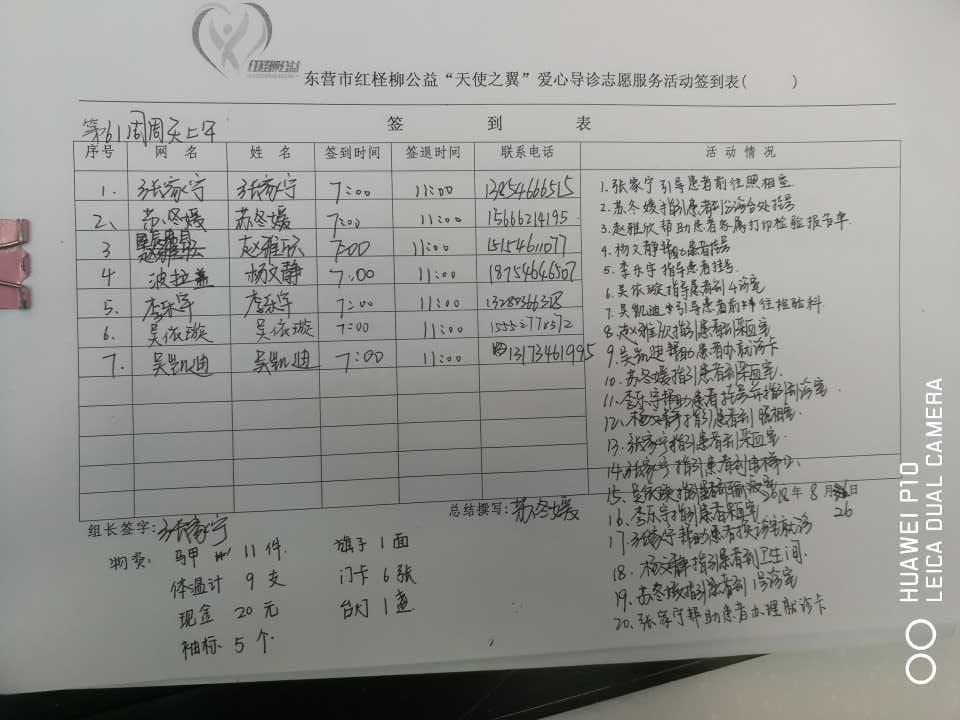 红柽柳公益
东营市红柽柳公益“天使之翼”爱心导诊志愿服务活动签到表( )
第61周周天上午
签 到 表
序号 网 名 姓 名 签到时间 签退时间 联系电话 活 动 情 况
1. 张家宁 张家宁 7:00 11:00 13954666515
2、 苏冬媛 苏冬媛 7:00 11:00 15666214195
3 赵雅欣 7:00 11:00 15154611077
4 波拉盖 杨文静 7:00 11:00 18754646507
5. 李乐宇 李乐宇 7:00 11:00
6. 吴依璇 吴依璇 7:00 11:00
7. 吴凯迪 吴凯迪 7:00 11:00 13173461995
1.张家宁引导患者前往照相室
2.苏冬媛指引患者到分诊台处挂号
3.赵雅欣帮助患者家属打印检验报告单
4.杨文静帮助患者挂号
5.李乐宇指导患者挂号
6.吴依璇指导患者到4诊室
7.吴凯迪引导患者前往检验科
8.赵雅欣指引患者到采血室
9.吴凯迪帮助患者办就诊卡
10.苏冬媛指引患者到采血室
11.李乐宇帮助患者挂号并指引到诊室
12.杨文静指引患者到照相室
13.张家宁指引患者到采血室
14.张家宁指引患者到电梯口
15.吴依璇指引患者到输液室
16.李乐宇指引患者采血室
17.张家宁帮助患者换诊室就诊
18.杨文静指引患者到卫生间
19.苏冬媛指引患者到1号诊室
20.张家宁帮助患者办理就诊卡
2018年8月26日
组长签字:张家宁
总结撰写:苏冬媛
物资: 马甲 11件 旗子1面
体温计 9支 门卡6张
现金 20元 台灯1盏
袖标 5个
HUAWEI P10
LEICA DUAL CAMERA